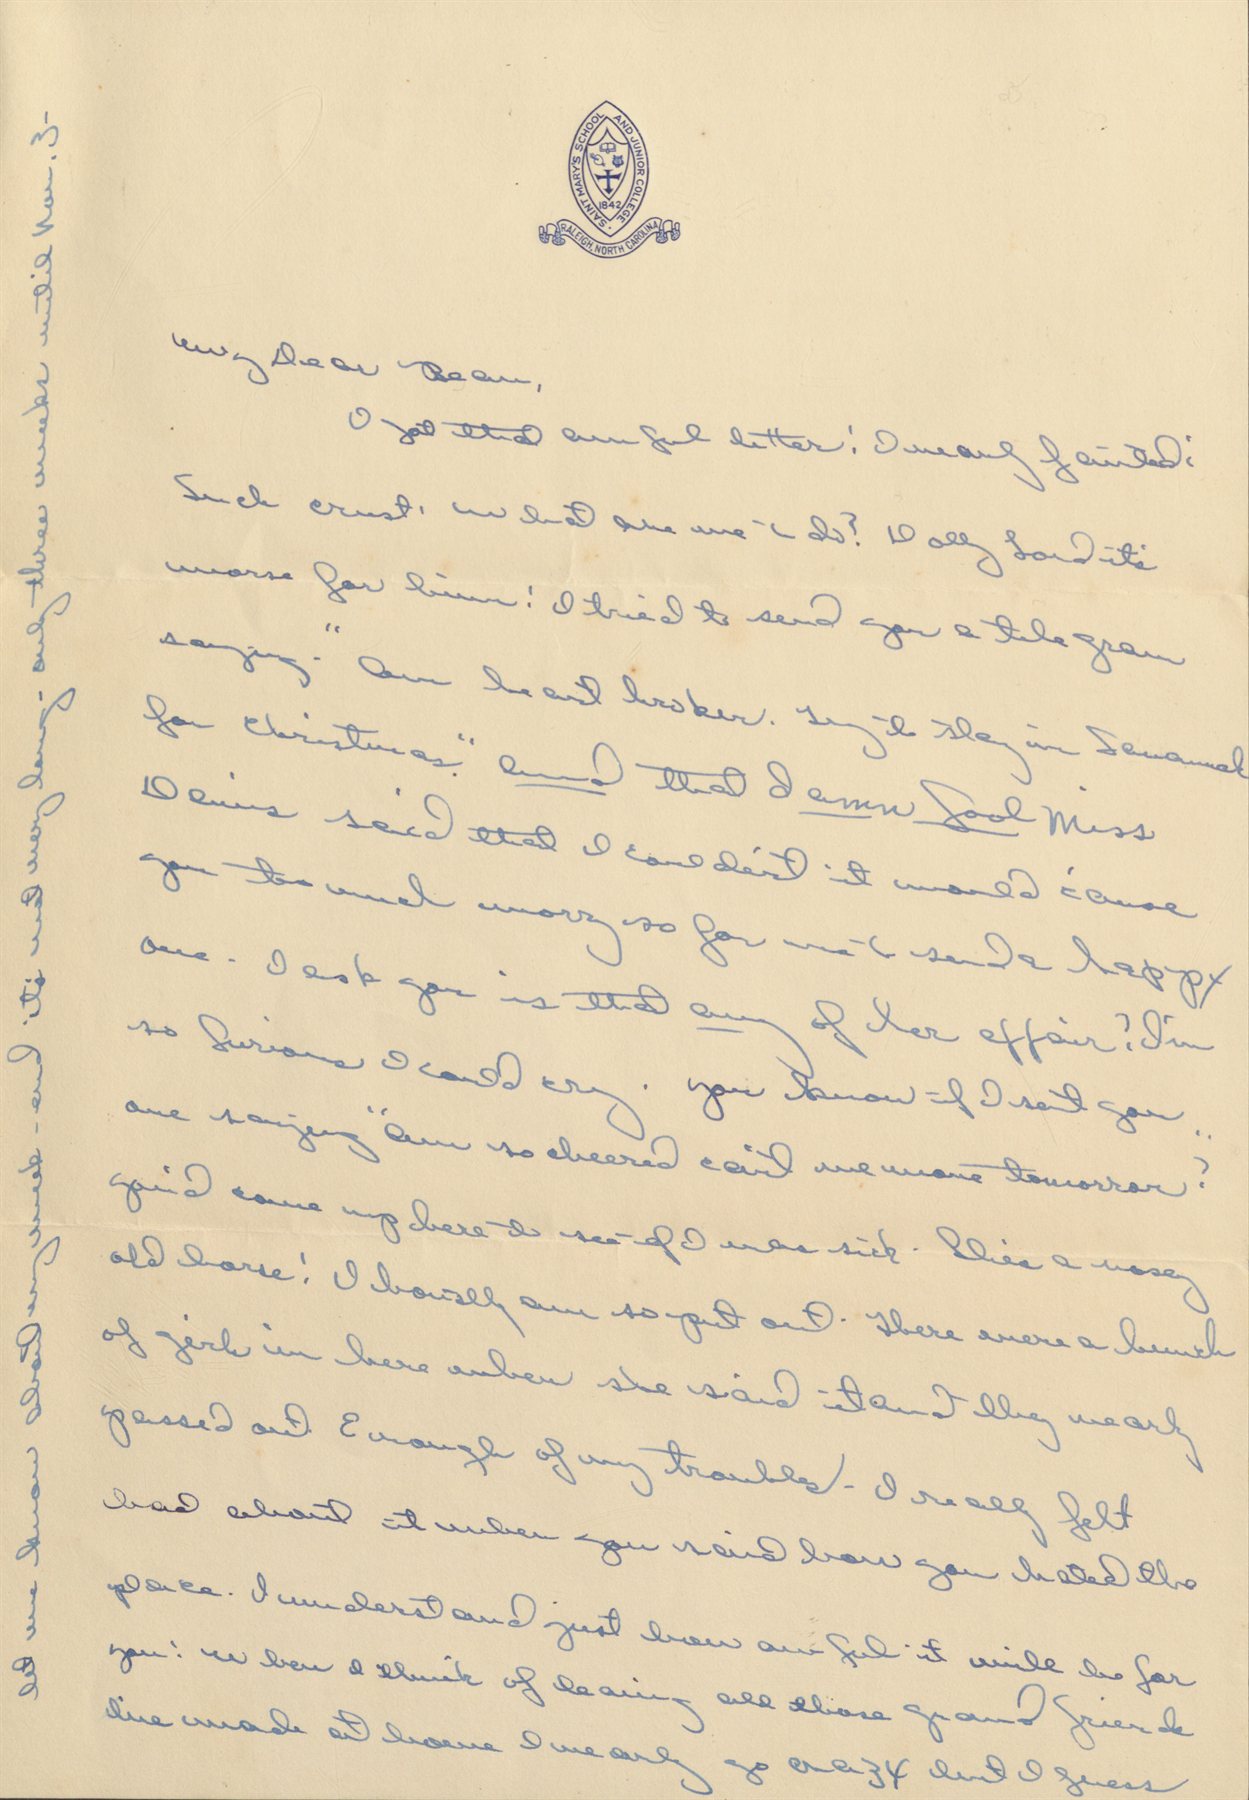 SAINT MARY'S SCHOOL AND JUNIOR COLLEGE
1842
RALEIGH, NORTH CAROLINA
My dear Bean,
I got that awful letter! I nearly fainted!
Such crust! What are we to do? Dolly said it's
worse for him! I tried to send you a telegram
saying "Am heart broken. Try to stay in Savannah
for Christmas." And that damn fool Miss
Davis said that I couldn't it would cause
you too much worry so for me to send a happy
one. I ask you is that any of her affair? I'm
so furious I could cry. You know if I sent you
one saying "Am so cheered can't we move tomorrow?"
you'd come up here to see if I was sick. She's a nosey
old horse! I honestly am so put out. There were a bunch
of girls in here when she said it and they nearly
passed out. Enough of my troubles - I really felt
bad about it when you said how you hated the
place. I understand just how awful it will be for
you! When I think of leaving all those grand friends
I've made at home I nearly go crazy but I guess
let me know about my week-end it's not very long - only three weeks until Nov. 3-